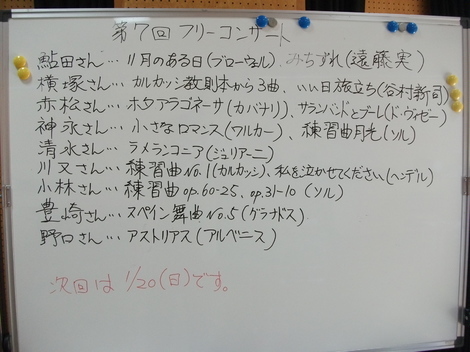 第7回 フリーコンサート
鮎田さん… 11月のある日(ブローウェル)、みちづれ(遠藤実)
横塚さん… カルカッシ教則本から3曲、いい日旅立ち(谷村新司)
赤松さん… ホタアラゴネーサ(カバナリ)、サラバンドとブーレ(ド・ヴィゼー)
神永さん… 小さなロマンス(ワルカー)、練習曲月光(ソル)
清水さん… ラメランコニア(ジュリアーニ)
川又さん… 練習曲No.1(カルカッシ)、私を泣かせてください(ヘンデル)
小林さん… 練習曲op.60-25、op.31-10(ソル)
豊崎さん… スペイン舞曲No.5(グラナドス)
野口さん… アストリアス(アルベニス)
次回は 1/20(日)です。